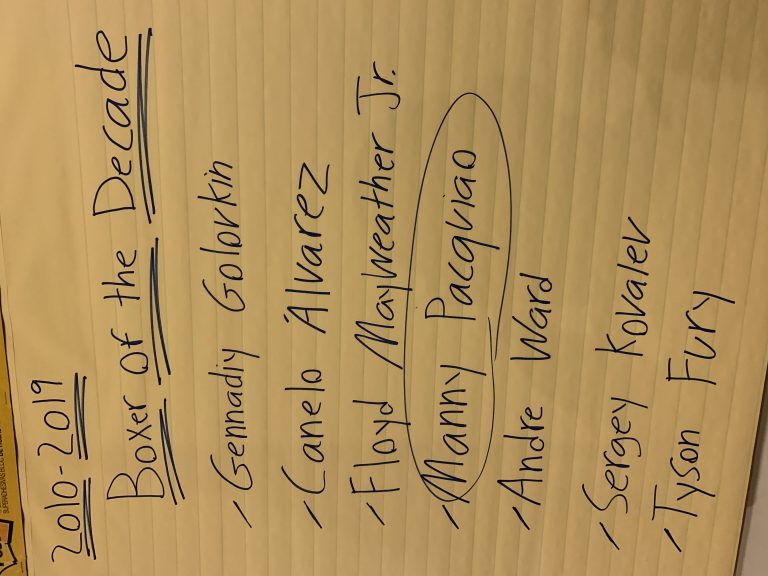 2010-2019
Boxer of the Decade
-Gennadiy Golovkin
-Canelo Álvarez
-Floyd Mayweather Jr.
-Manny Pacquiao
-Andre Ward
-Sergey Kovalev
-Tyson Fury